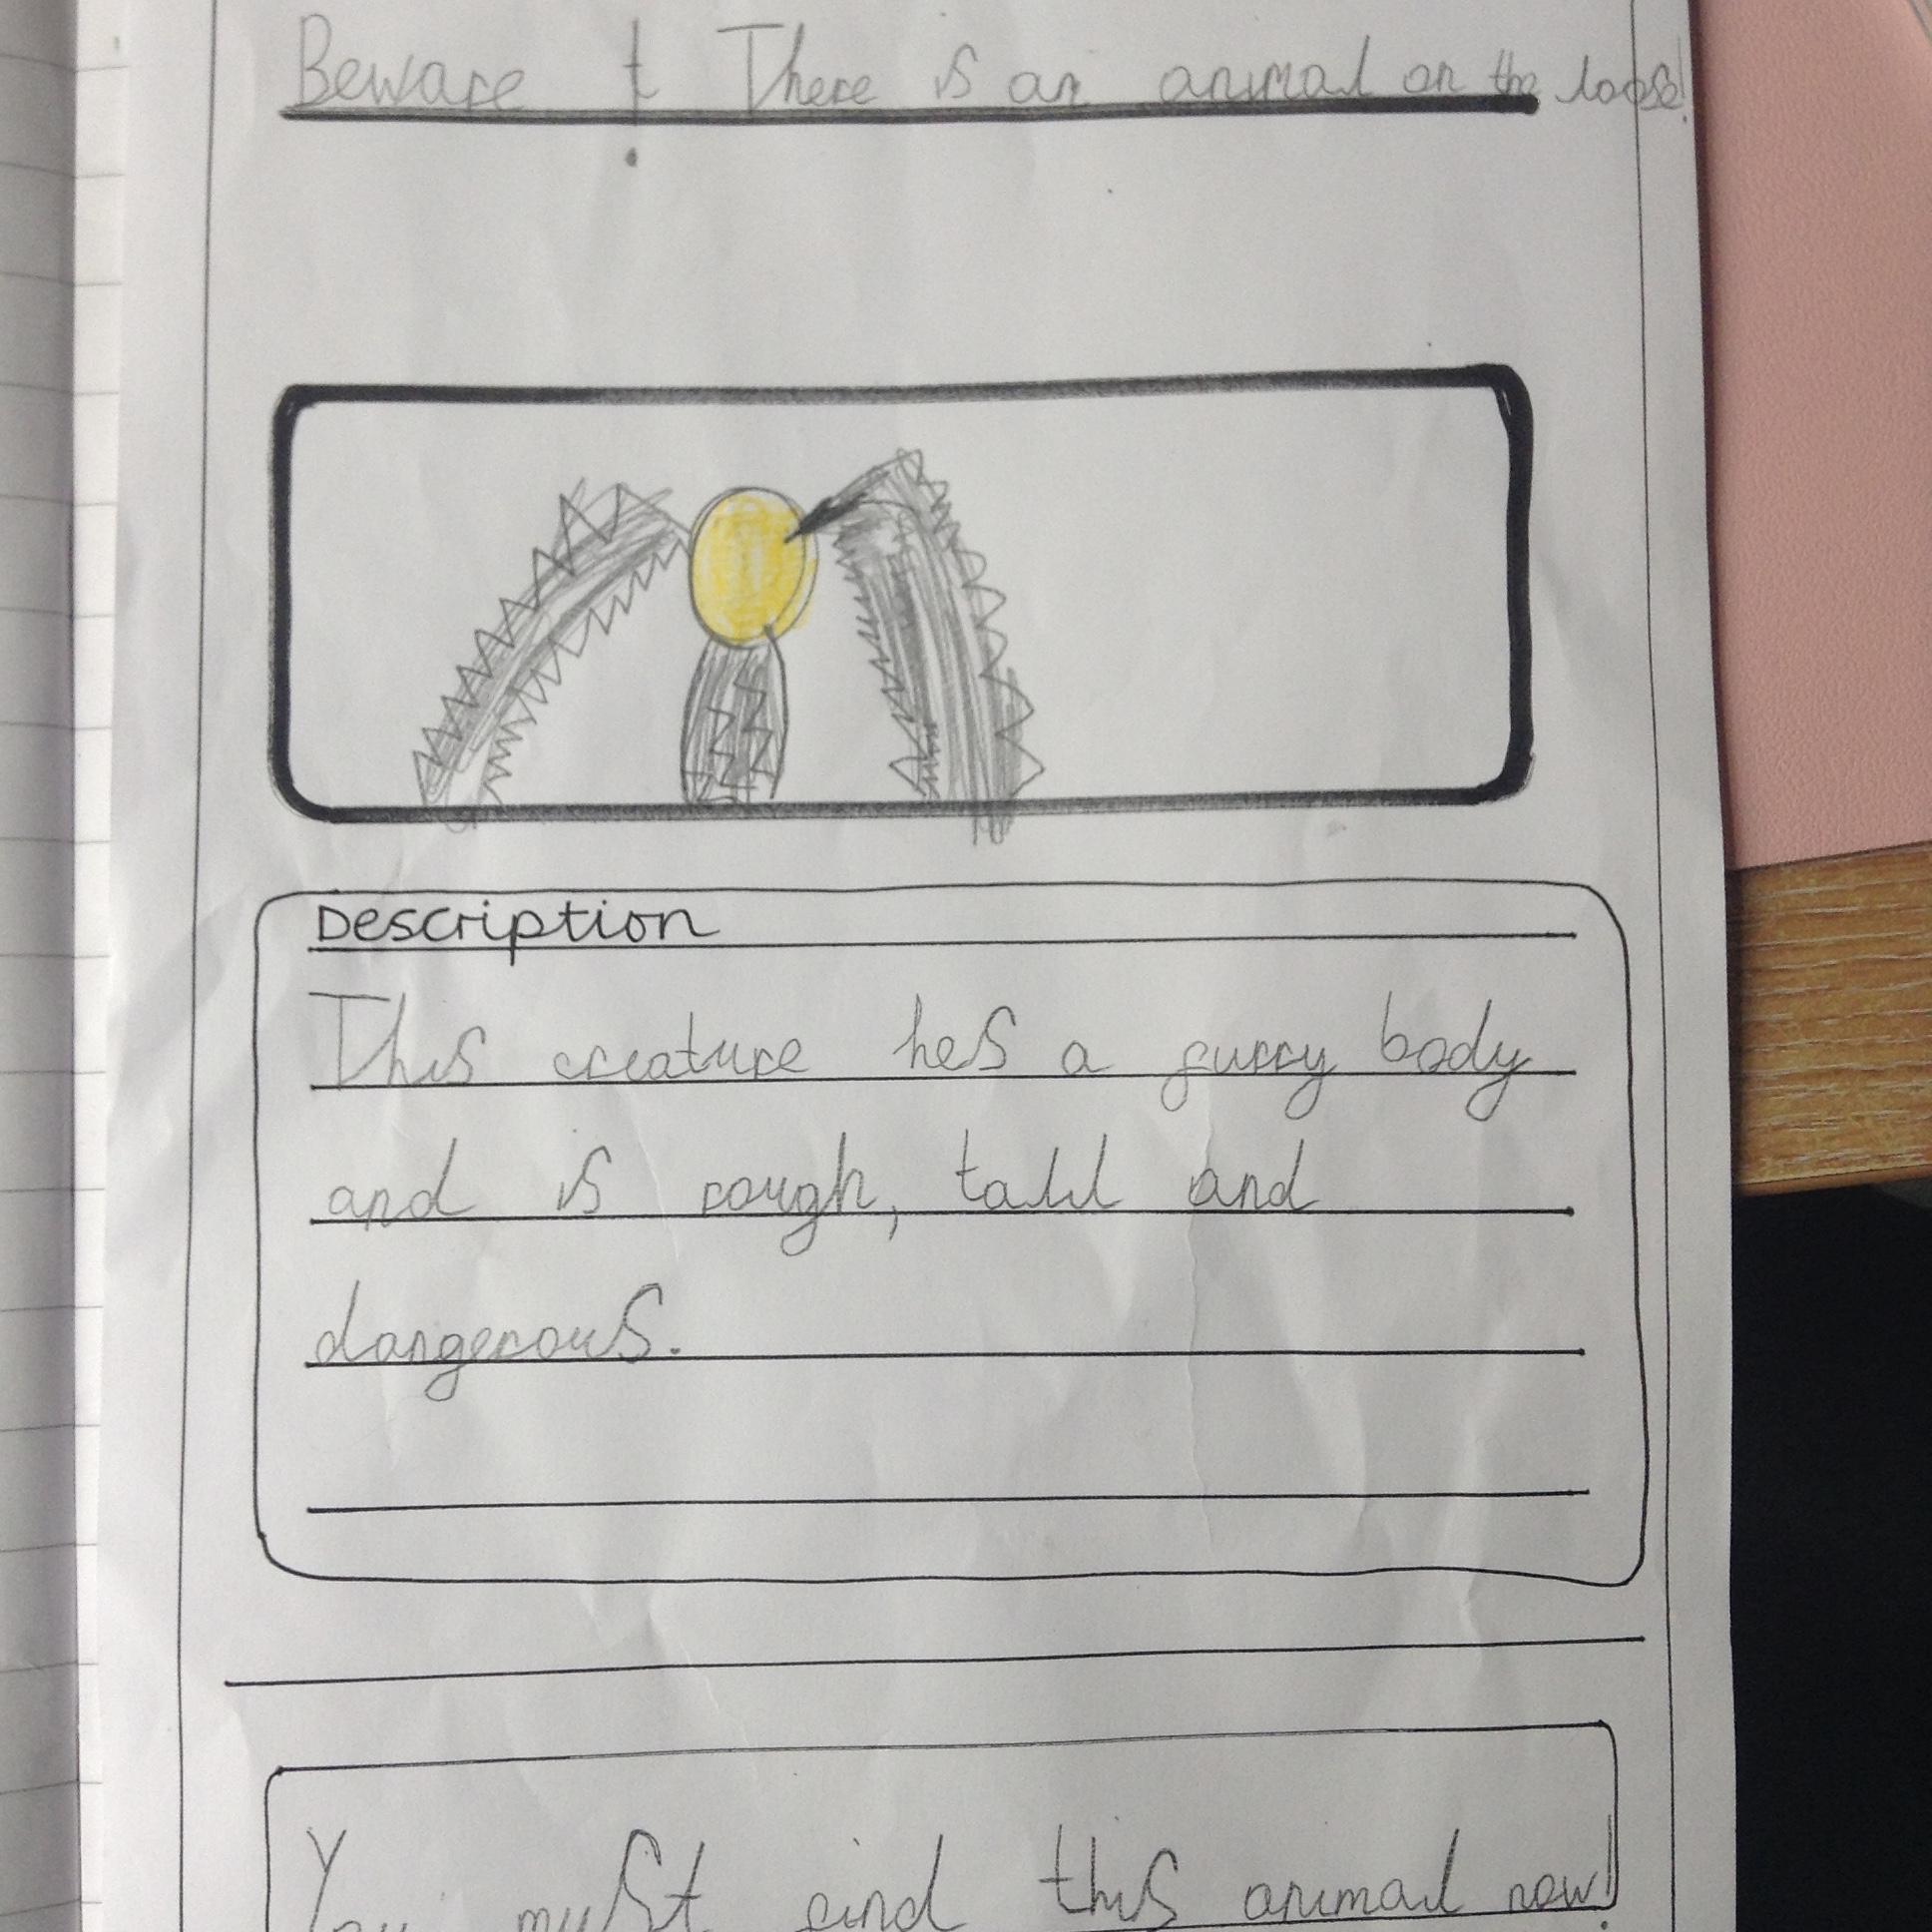 Beware ! There is an animal on the loose!
Description
This creature hes a furry body
and is rough, tall and
dangerous.
You must find this animal now!